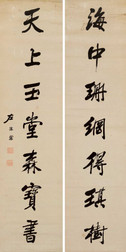 海中珊網得琪樹
天上玉堂森寶書